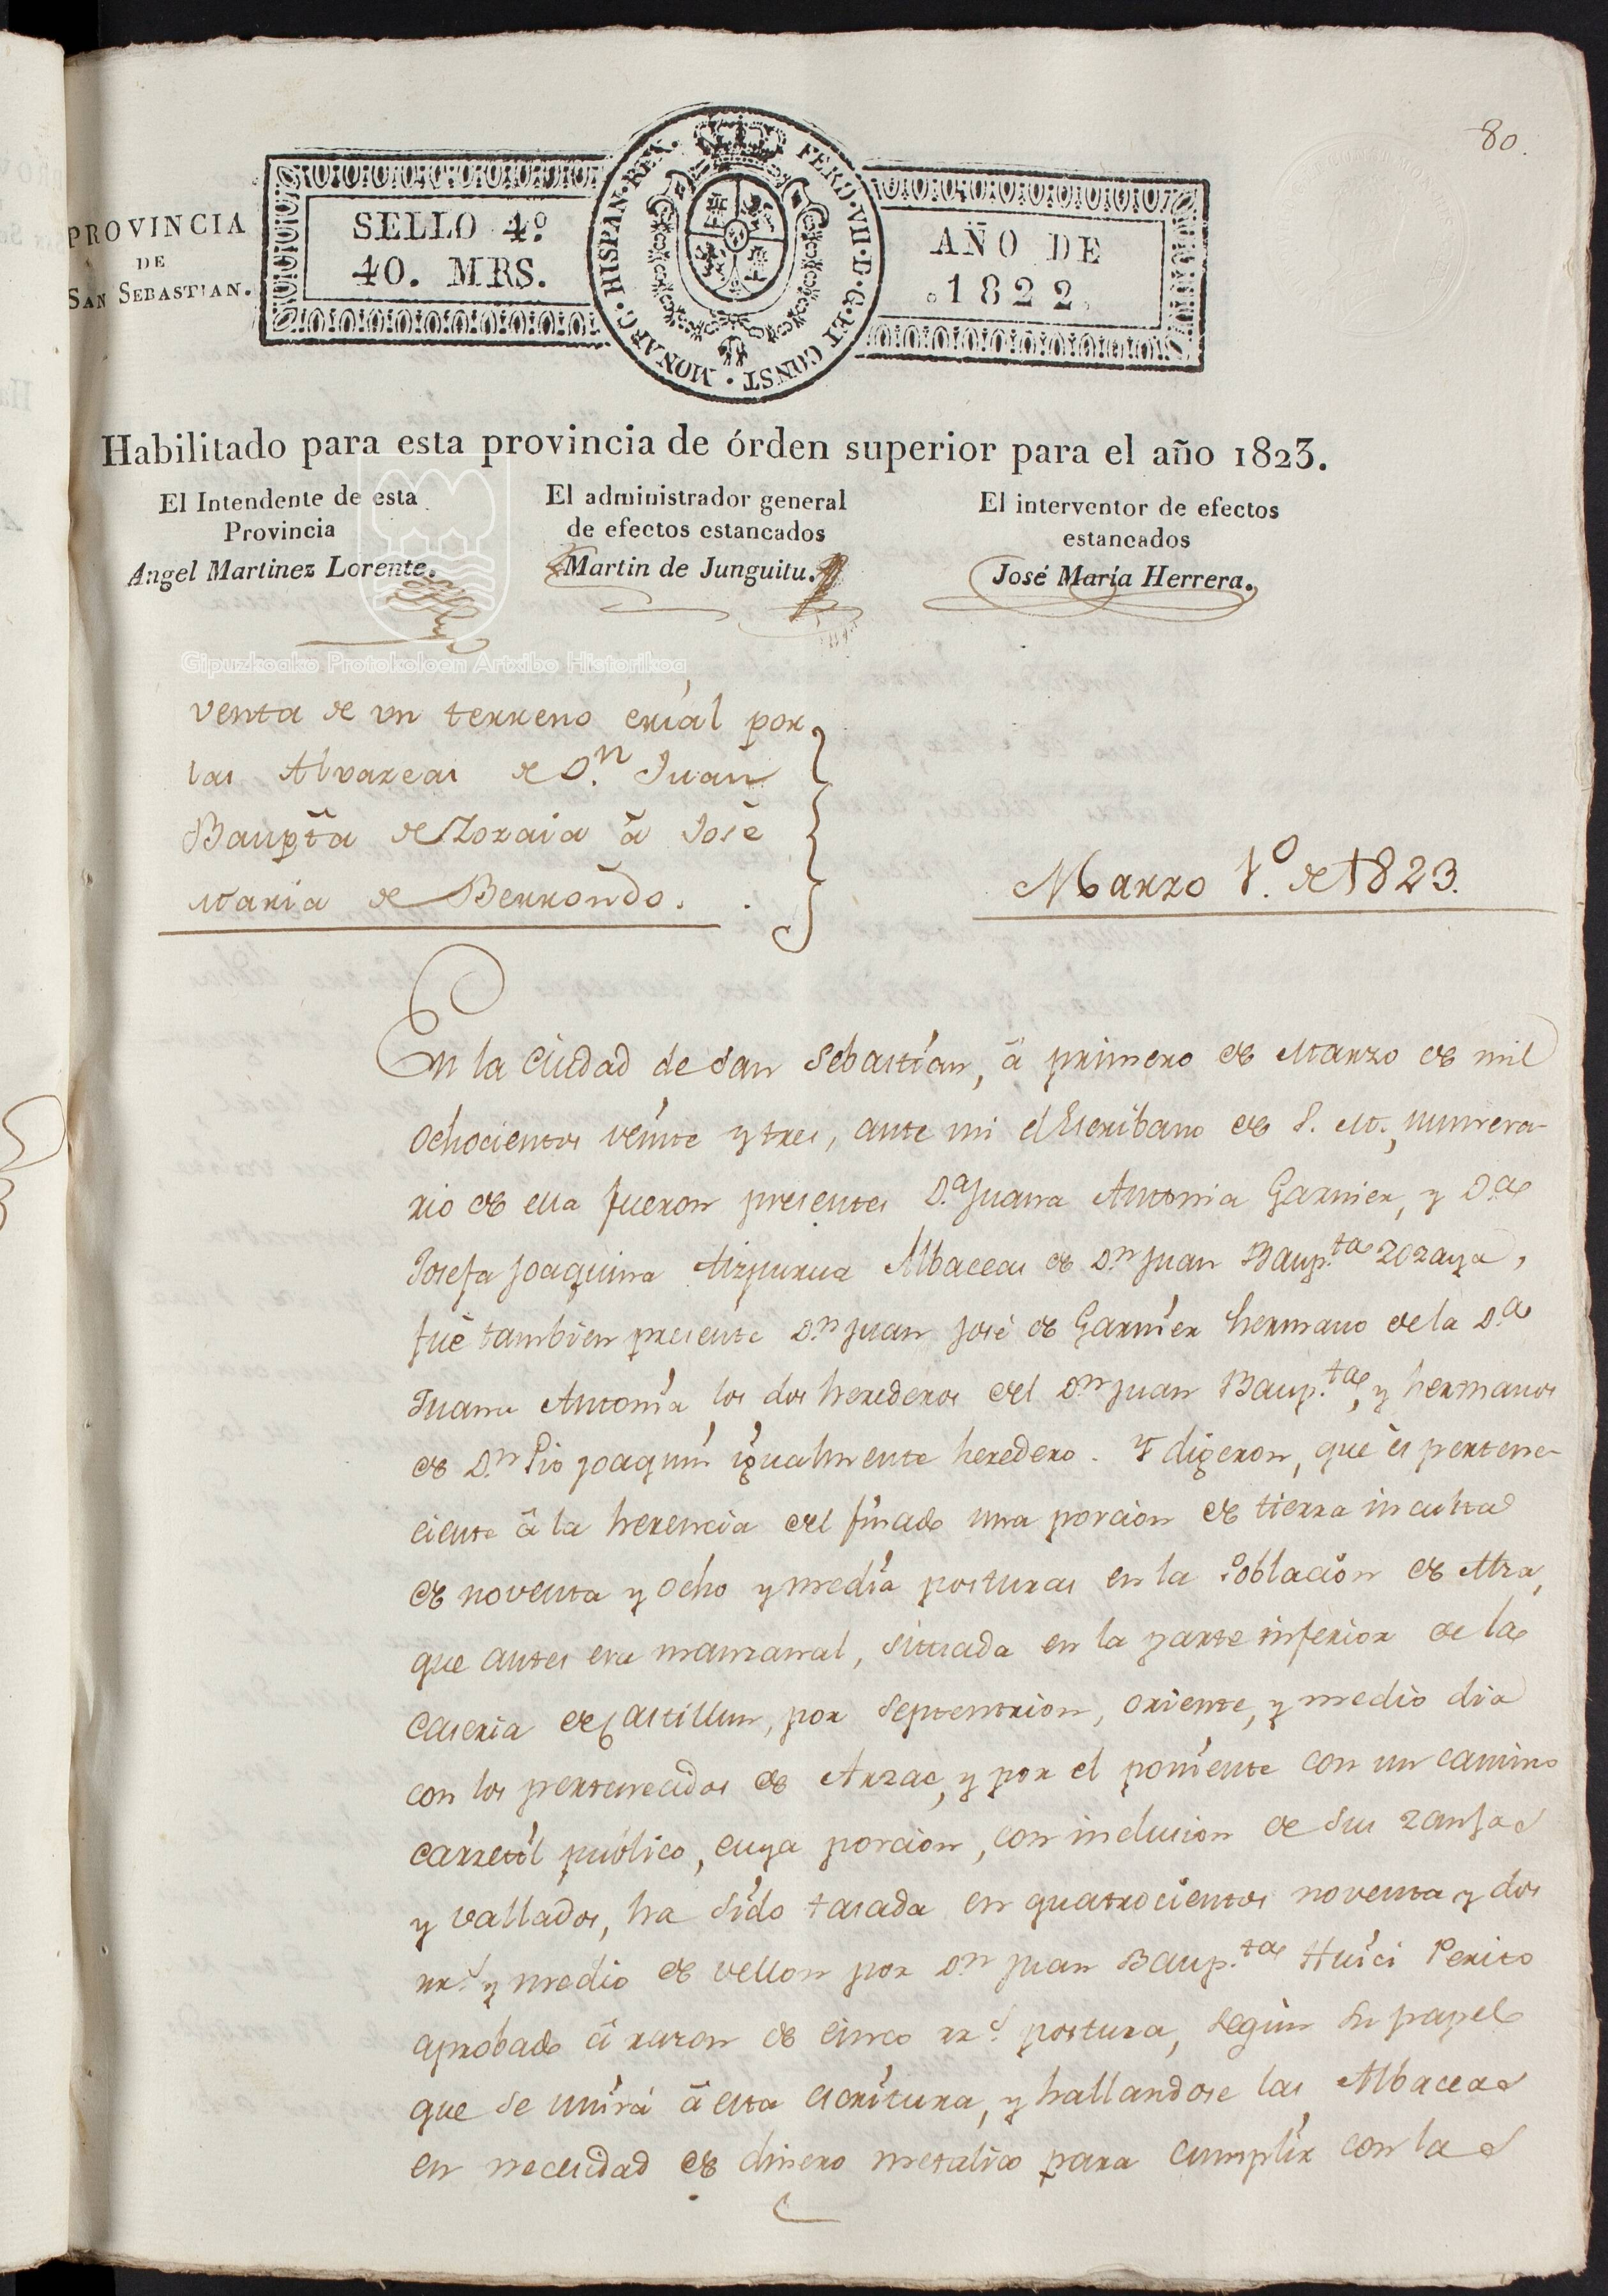 80.
PROVINCIA
DE
SAN SEBASTIAN.
SELLO 4º
40. MRS.
FERD·VII·D·G·ET CONST·MONARC·HISPAN·REX.
AÑO DE
1822
Habilitado para esta provincia de órden superior para el año 1823.
El Intendente de esta
Provincia
Angel Martinez Lorente.
El administrador general
de efectos estancados
Martin de Junguitu.
El interventor de efectos
estancados
José María Herrera.
Gipuzkoako Protokoloen Artxibo Historikoa
Venta de un terreno eriál por
las Alvaceas de D.n Juan
Baupta de Zozaia á José
Maria de Berrondo.
Marzo 1.º de 1823.
En la Ciudad de San Sebastián, á primero de Marzo de mil
ochocientos veinte y tres, ante mi el Escribano de S. M., numera-
rio de ella fueron presentes D.ª Juana Antonia Garnier, y D.ª
Josefa Joaquina Aizpurua Albaceas de D.n Juan Baup.ta Zozaya,
fué tambien presente D.n Juan José de Garnier hermano de la D.ª
Juana Antonia los dos herederos del D.n Juan Baup.ta, y hermanos
de D.n Pio Joaquin igualmente heredero. Y digeron, que és pertene-
ciente á la herencia del finado una porcion de tierra inculta
de noventa y ocho y media posturas en la Poblacion de Alza,
que antes era manzanal, situada en la parte inferior de la
Caseria de Castillun, por Septentrion, oriente, y medio dia
con los pertenecidos de Arzac, y por el poniente con un camino
carretil publico, cuya porcion, con inclusion de sus zanjas
y vallados, ha sido tasada en quatrocientos noventa y dos
rr.s y medio de vellon por D.n Juan Baup.ta Huici Perito
aprobado á razon de cinco rr.s postura, según su papel
que se unirá á esta escritura, y hallandose las Albaceas
en necesidad de dinero metalico para cumplir con las